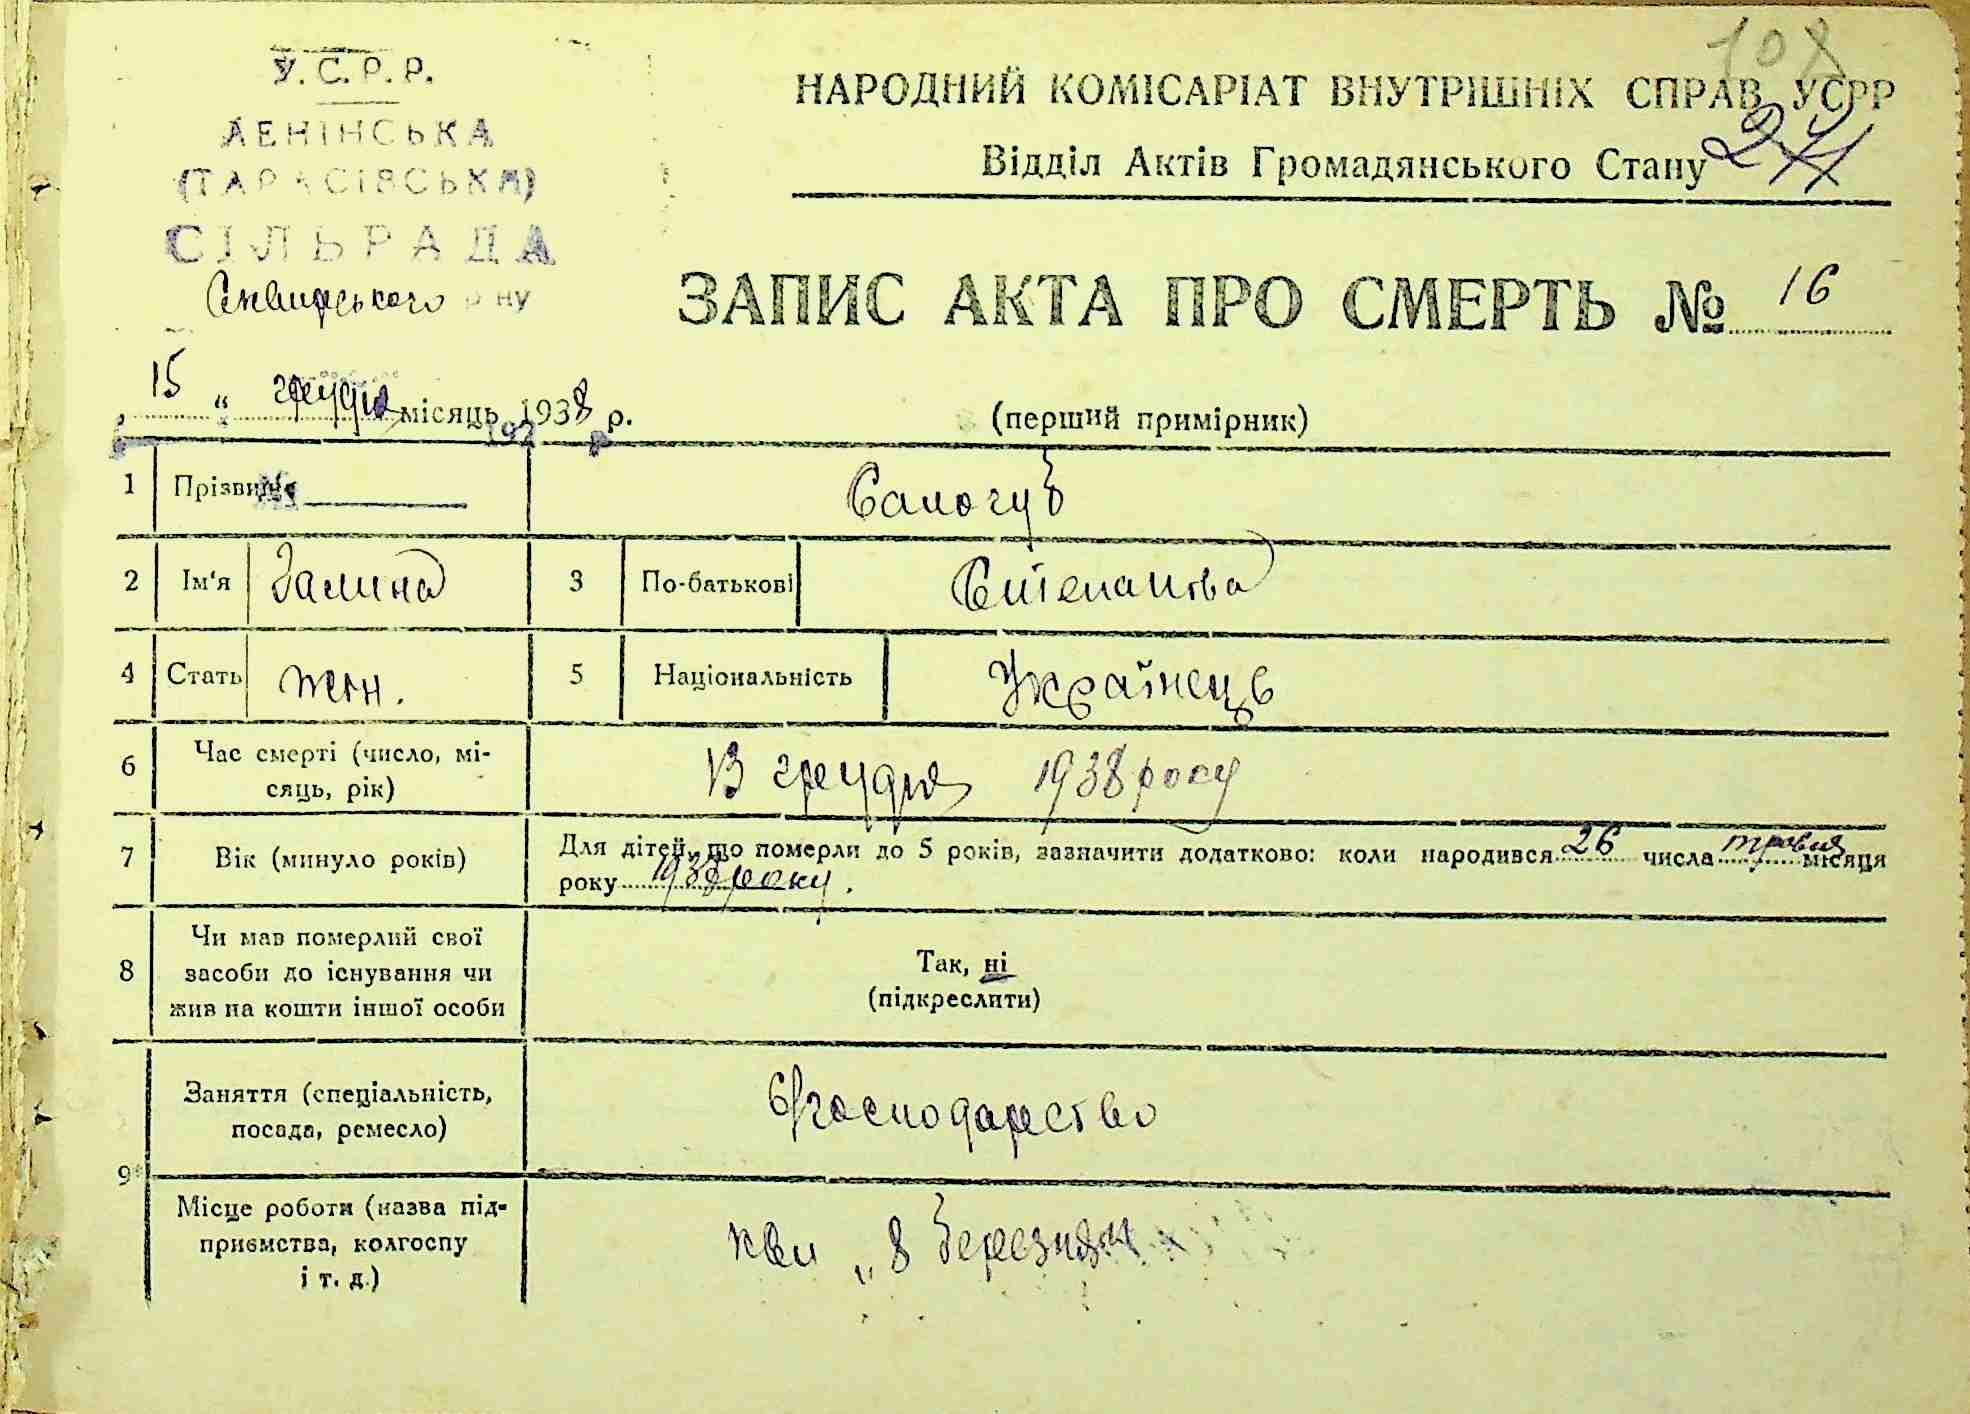 У.С.Р.Р.
ЛЕНІНСЬКА
(ТАРАСІВСЬКА)
СІЛЬРАДА
Сквирського р ну
108
НАРОДНИЙ КОМІСАРІАТ ВНУТРІШНІХ СПРАВ УСРР
Відділ Актів Громадянського Стану
ЗАПИС АКТА ПРО СМЕРТЬ № 16
15 " грудня місяць 1938 р.
(перший примірник)
1 Прізвище Самогуб
2 Ім'я Галина 3 По-батькові Степанова
4 Стать жен. 5 Національність Українець
6 Час смерті (число, мі-
сяць, рік) 13 грудня 1938 року
7 Вік (минуло років) Для дітей, що померли до 5 років, зазначити додатково: коли народився 26 числа травня місяця
року 1938 року.
8 Чи мав померлий свої
засоби до існування чи
жив на кошти іншої особи
Так, ні
(підкреслити)
9 Заняття (спеціальність,
посада, ремесло) С/господарство
Місце роботи (назва під-
приємства, колгоспу
і т. д.)
„ 8 Березня